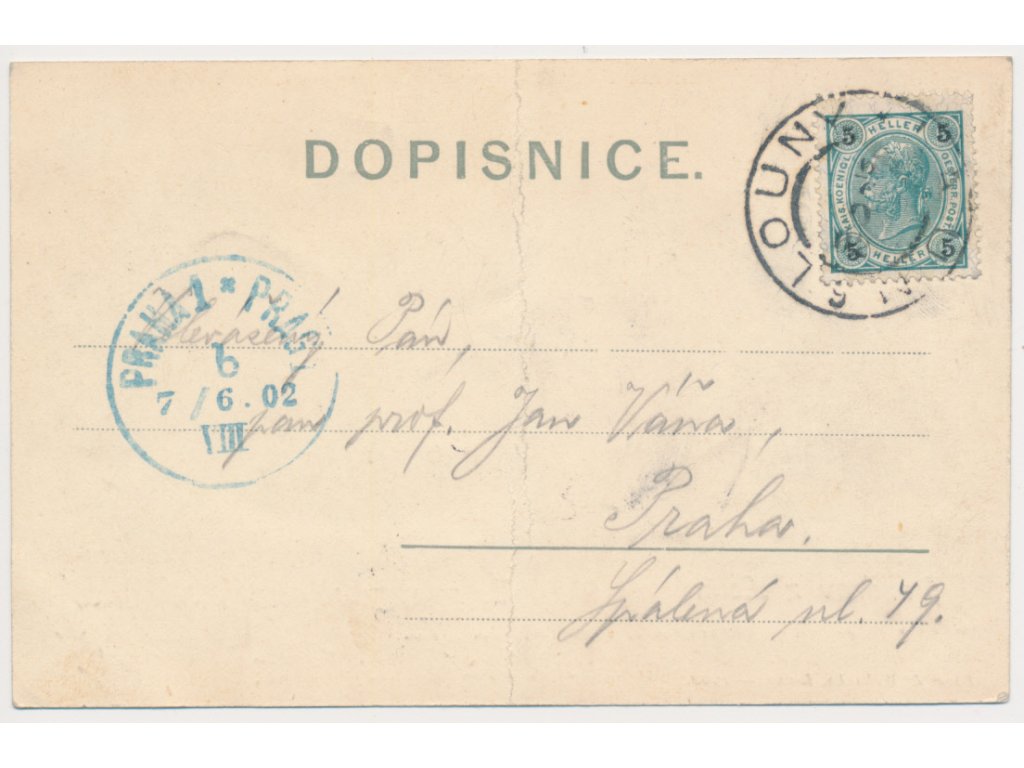 DOPISNICE.
LOUNY
5 HELLER 5
KAIS. KOENIGL.
OESTERR. POST.
5 HELLER 5
PRAHA 1 * PRAG
b
7/6.02
VIII
Pán,
pan prof. Jan Váňa,
Praha.
Spálená ul. 49.